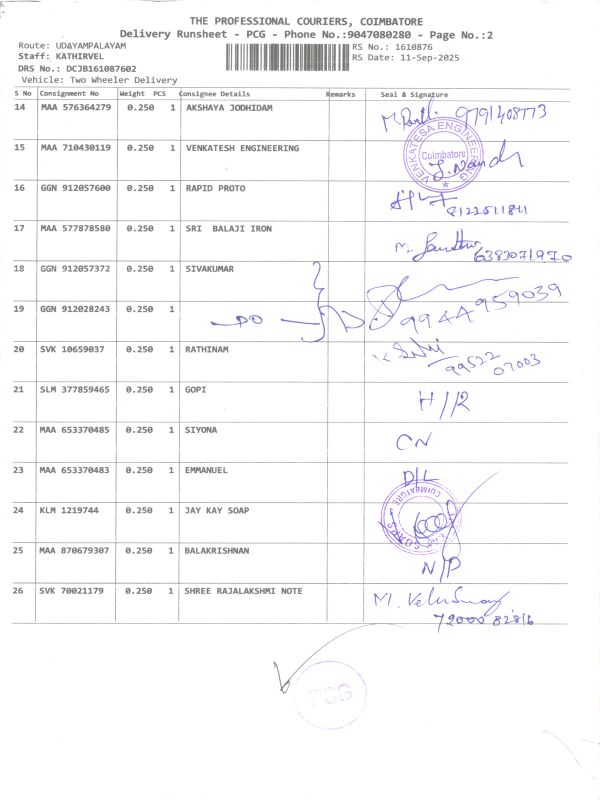 THE PROFESSIONAL COURIERS, COIMBATORE
Delivery Runsheet - PCG - Phone No.:9047080280 - Page No.:2
Route: UDAYAMPALAYAM RS No.: 1610876
Staff: KATHIRVEL RS Date: 11-Sep-2025
DRS No.: DCJB161087602
Vehicle: Two Wheeler Delivery
S No Consignment No Weight PCS Consignee Details Remarks Seal & Signature
14 MAA 576364279 0.250 1 AKSHAYA JODHIDAM 9791408773
15 MAA 710430119 0.250 1 VENKATESH ENGINEERING VENKATESA ENGINEERING Coimbatore
16 GGN 912057600 0.250 1 RAPID PROTO
8122511841
17 MAA 577878580 0.250 1 SRI BALAJI IRON
6383071970
18 GGN 912057372 0.250 1 SIVAKUMAR
19 GGN 912028243 0.250 1 9944959039
20 SVK 10659037 0.250 1 RATHINAM
99522
07003
21 SLM 377859465 0.250 1 GOPI H/R
22 MAA 653370485 0.250 1 SIYONA CN
23 MAA 653370483 0.250 1 EMMANUEL D/L
24 KLM 1219744 0.250 1 JAY KAY SOAP COIMBATORE
25 MAA 870679307 0.250 1 BALAKRISHNAN N/P
26 SVK 70021179 0.250 1 SHREE RAJALAKSHMI NOTE
72000 82816
PCG